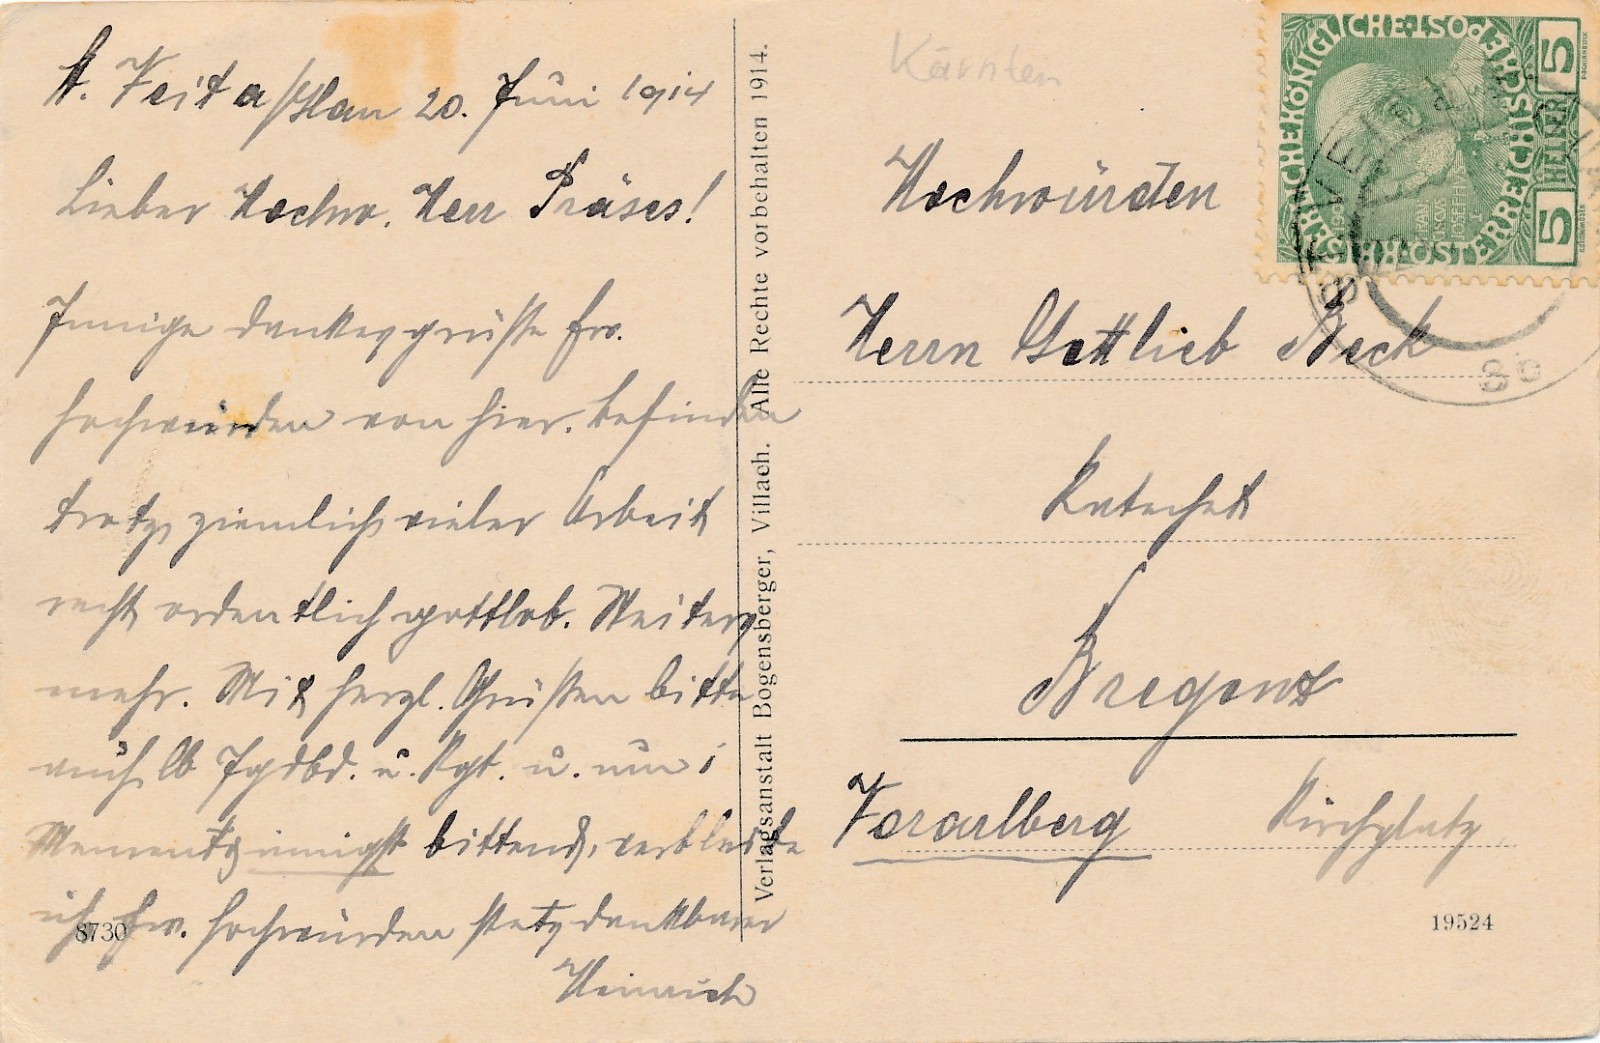 St. Veit a/Glan 20. Juni 1914
Lieber Hochw. Herr Präses!
Innige Dankesgrüße Ew.
Hochwürden von hier. Befinden
trotz ziemlich vieler Arbeit
recht ordentlich gottlob. Weiters
mehr. Mit herzl. Grüßen bitte
auch lb u. u. um
Memento innigst bittend, verbleibe
ich Ew. Hochwürden stets dankbarer
Heinrich
8730
Verlagsanstalt Bogensberger, Villach. Alle Rechte vorbehalten 1914.
Kärnten
KAISERLICHE KÖNIGLICHE ÖSTERREICHISCHE POST
5 HELLER 5
1908
FRANZ JOSEPH I
ST. VEIT
8b
Hochwürden
Herrn Gottlieb Beck
Katechet
Bregenz
Vorarlberg Kirchplatz
19524